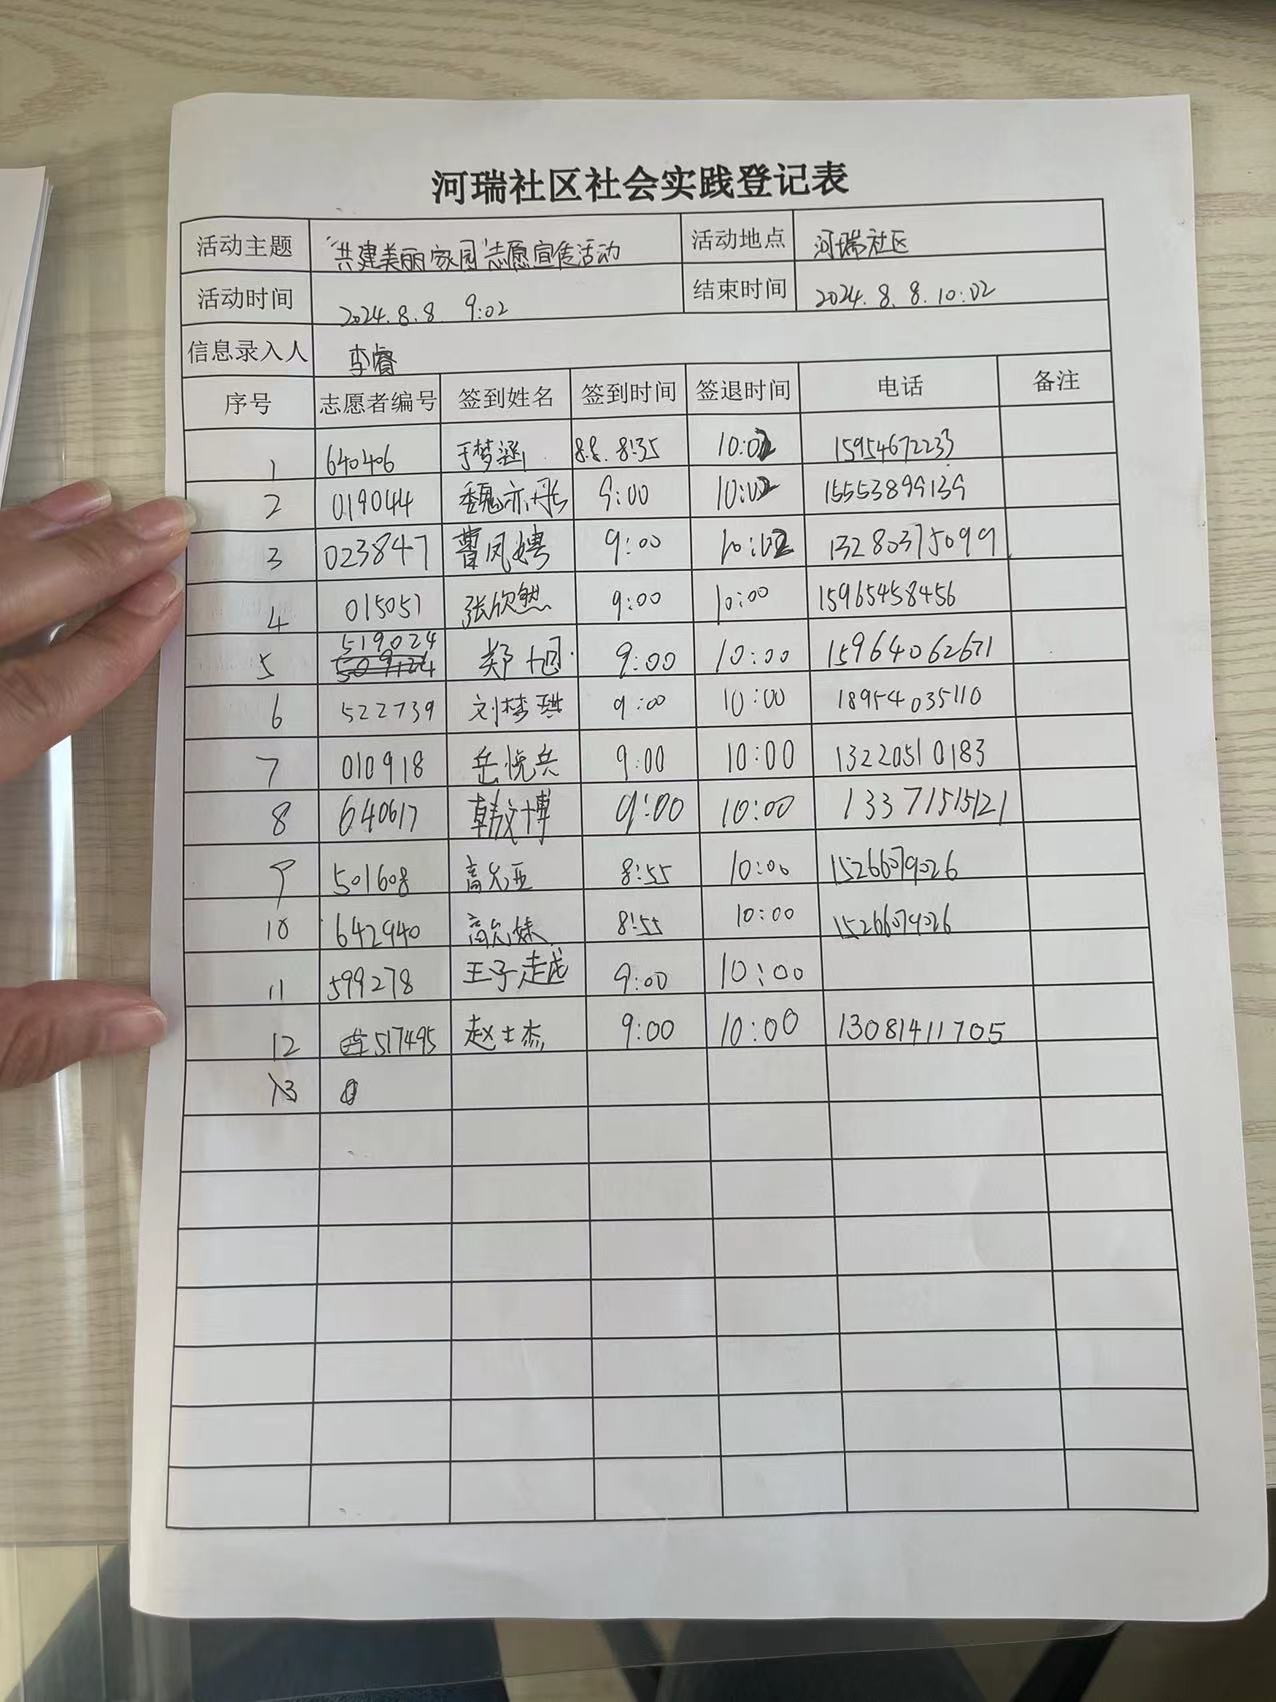 河瑞社区社会实践登记表
活动主题 “共建美丽家园”志愿宣传活动 活动地点 河瑞社区
活动时间 2024.8.8 9:02 结束时间 2024.8.8.10:02
信息录入人 李睿
序号 志愿者编号 签到姓名 签到时间 签退时间 电话 备注
1 640406 于梦涵 8.8. 8:35 10:02 15954672233
2 019044 魏亦彤 9:00 10:02 15553899139
3 023847 曹凤娉 9:00 10:02 13280375099
4 015057 张欣然 9:00 10:00 15965458456
5 519024 郑旭 9:00 10:00 15964062671
6 522739 刘梦琪 9:00 10:00 18954035110
7 010918 岳悦兵 9:00 10:00 13220510183
8 640617 韩文博 9:00 10:00 13371515121
9 501608 高允亚 8:55 10:00 15266079026
10 642940 高允妹 8:55 10:00 15266079026
11 599278 王子 9:00 10:00
12 517495 赵士杰 9:00 10:00 13081411705
13